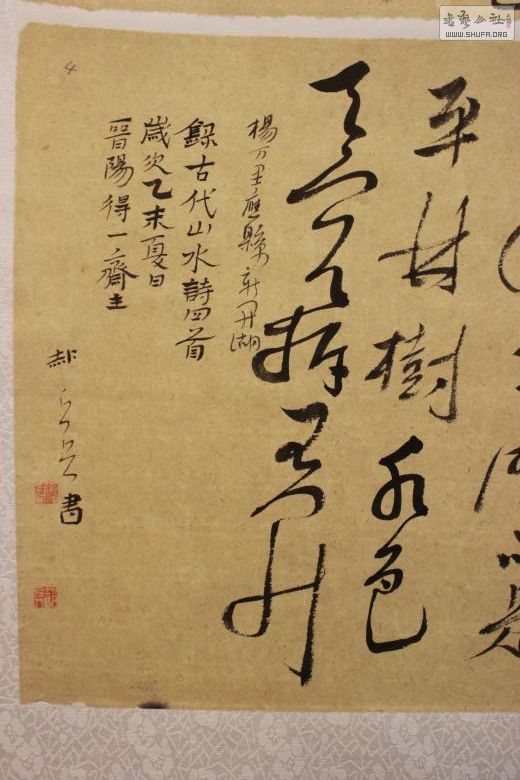 書藝公社
WWW.SHUFA.ORG
不是
平林樹水色
天容拆不开
楊万里應縣新开湖
錄古代山水詩四首
歲次乙未夏日
晉陽得一齋主
郝書
4